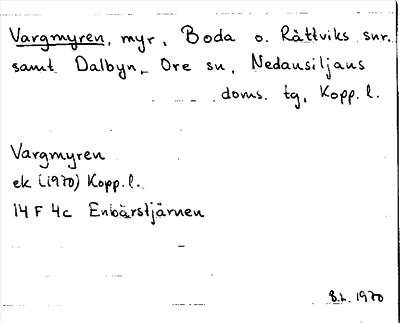 Vargmyren, myr, Boda o. Rättviks snr.
samt Dalbyn, Ore sn, Nedansiljans
doms. tg, Kopp. l.
Vargmyren
ek (1970) Kopp. l.
14 F 4c Enbärstjärnen
B.L. 1970